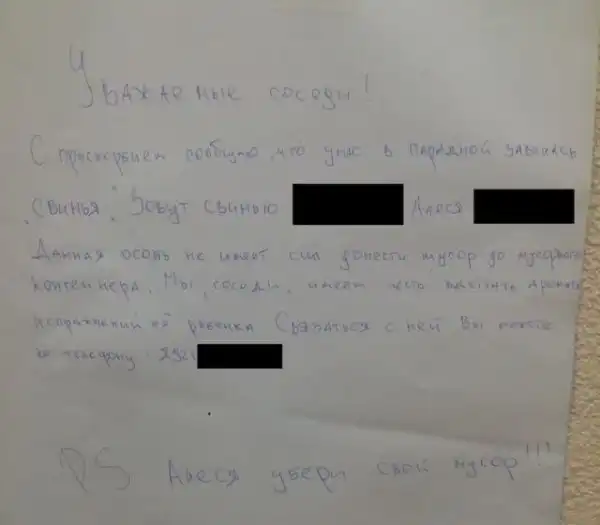 Уважаемые соседи!
С прискорбием сообщаю, что у нас в парадной завелась
"Свинья". Зовут свинью Алеся
Данная особь не имеет сил донести мусор до мусорного
контейнера. Мы, соседи, имеем честь
испражнений её ребенка Связаться с ней Вы можете
по телефону: 8921
PS Алеся убери свой мусор!!!